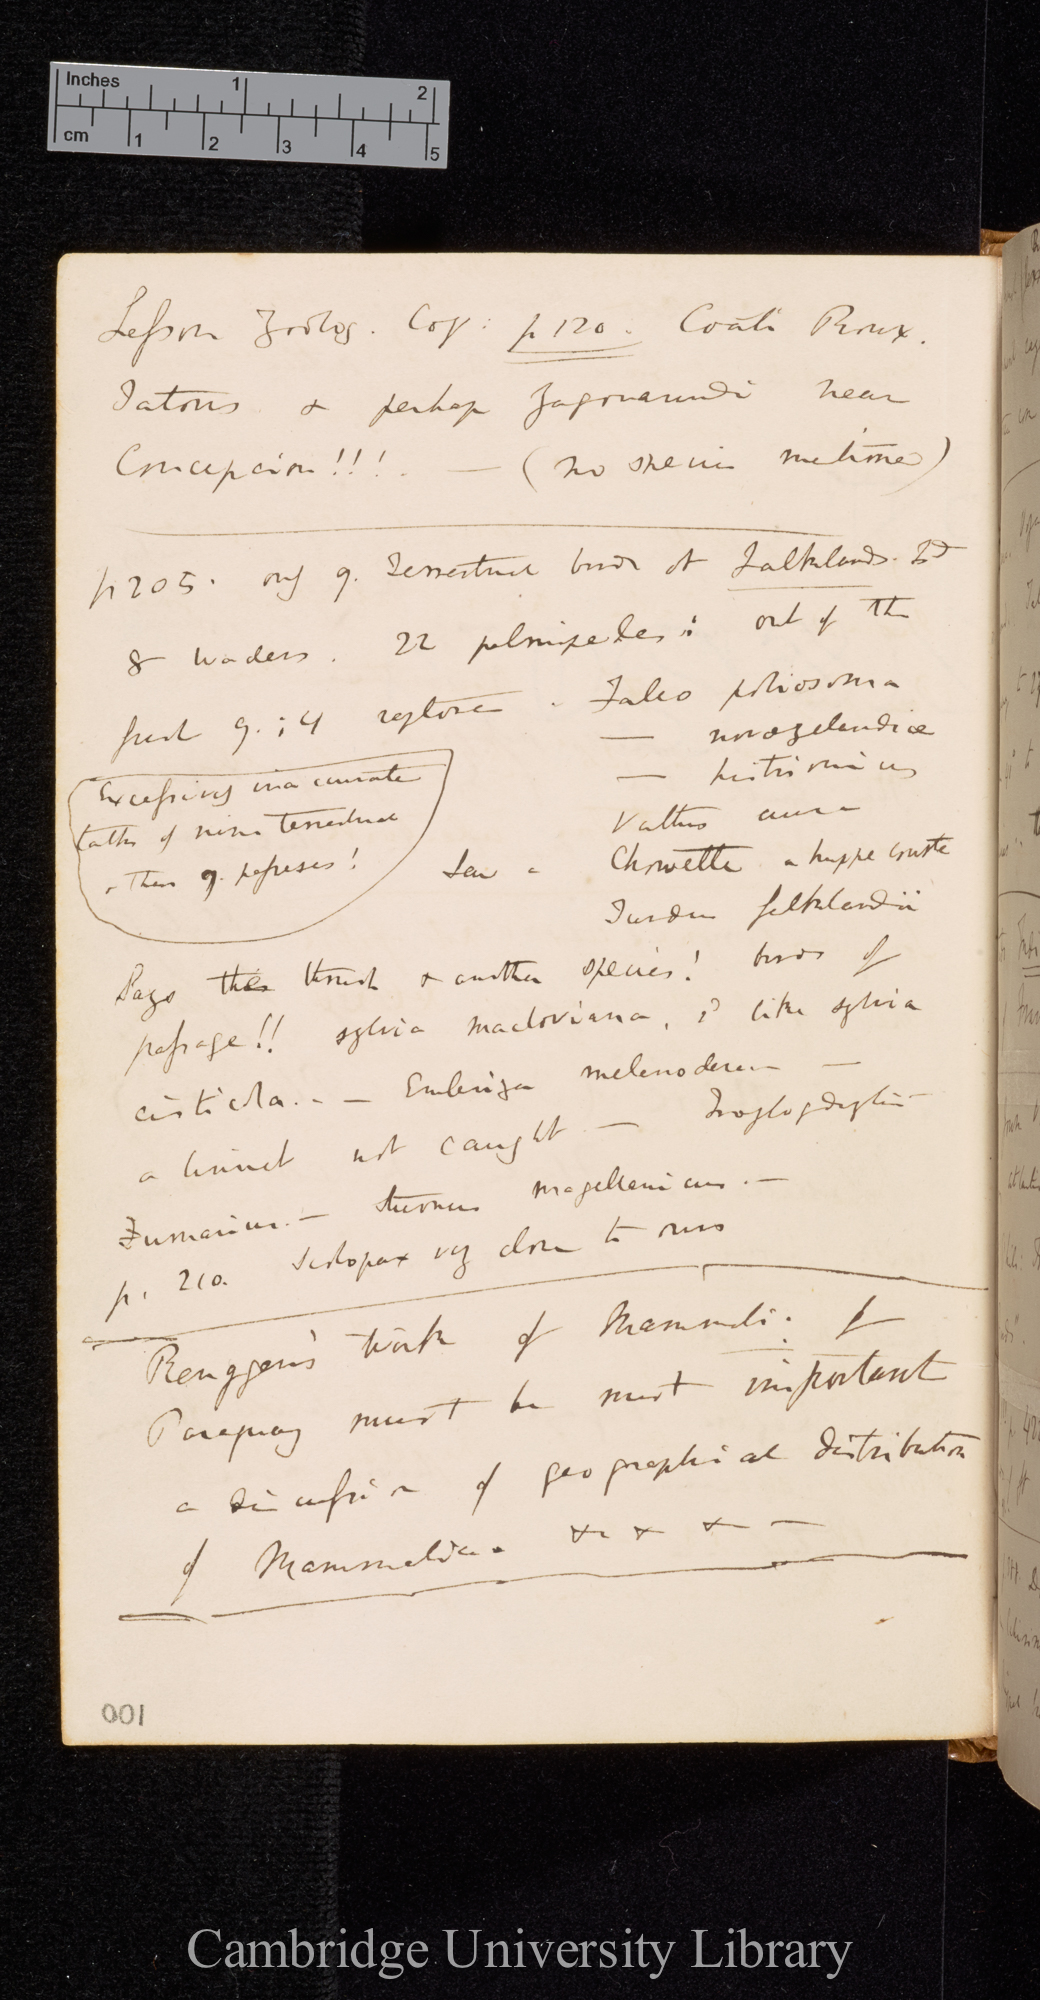 Inches 1 2
cm 1 2 3 4 5
Lesson Zoolog. Coq: p 120. Coati Roux.
Tatous & perhap Jagouarundi near
Concepcion!!! — (no species mentioned)
p 205. only 9. Terrestrial birds at Falklands. Isd
8 waders. 22 palmipedes: out of the
first 9.; 4 raptores. Falco poliosoma
— novæzelandiæ
— histrionicus
Excessively inaccurate
talks of nine terrestrial
& then 9. passeres!
Vultur aura
Saw a Chouette a huppe courte
Turdus falklandii
Says this thrush & another species! birds of
passage!! sylvia macloviana, is like sylvia
cisticola. — Emberiza melanodera —
a linnet not caught — Troglodytes
Furnarius. — Sturnus magellanicus. —
p. 210. Scolopax very close to ours
Rengger's work of Mammali. of
Paraguay must be most important
a discussion of geographical distribution
of Mammalia.
001
Cambridge University Library